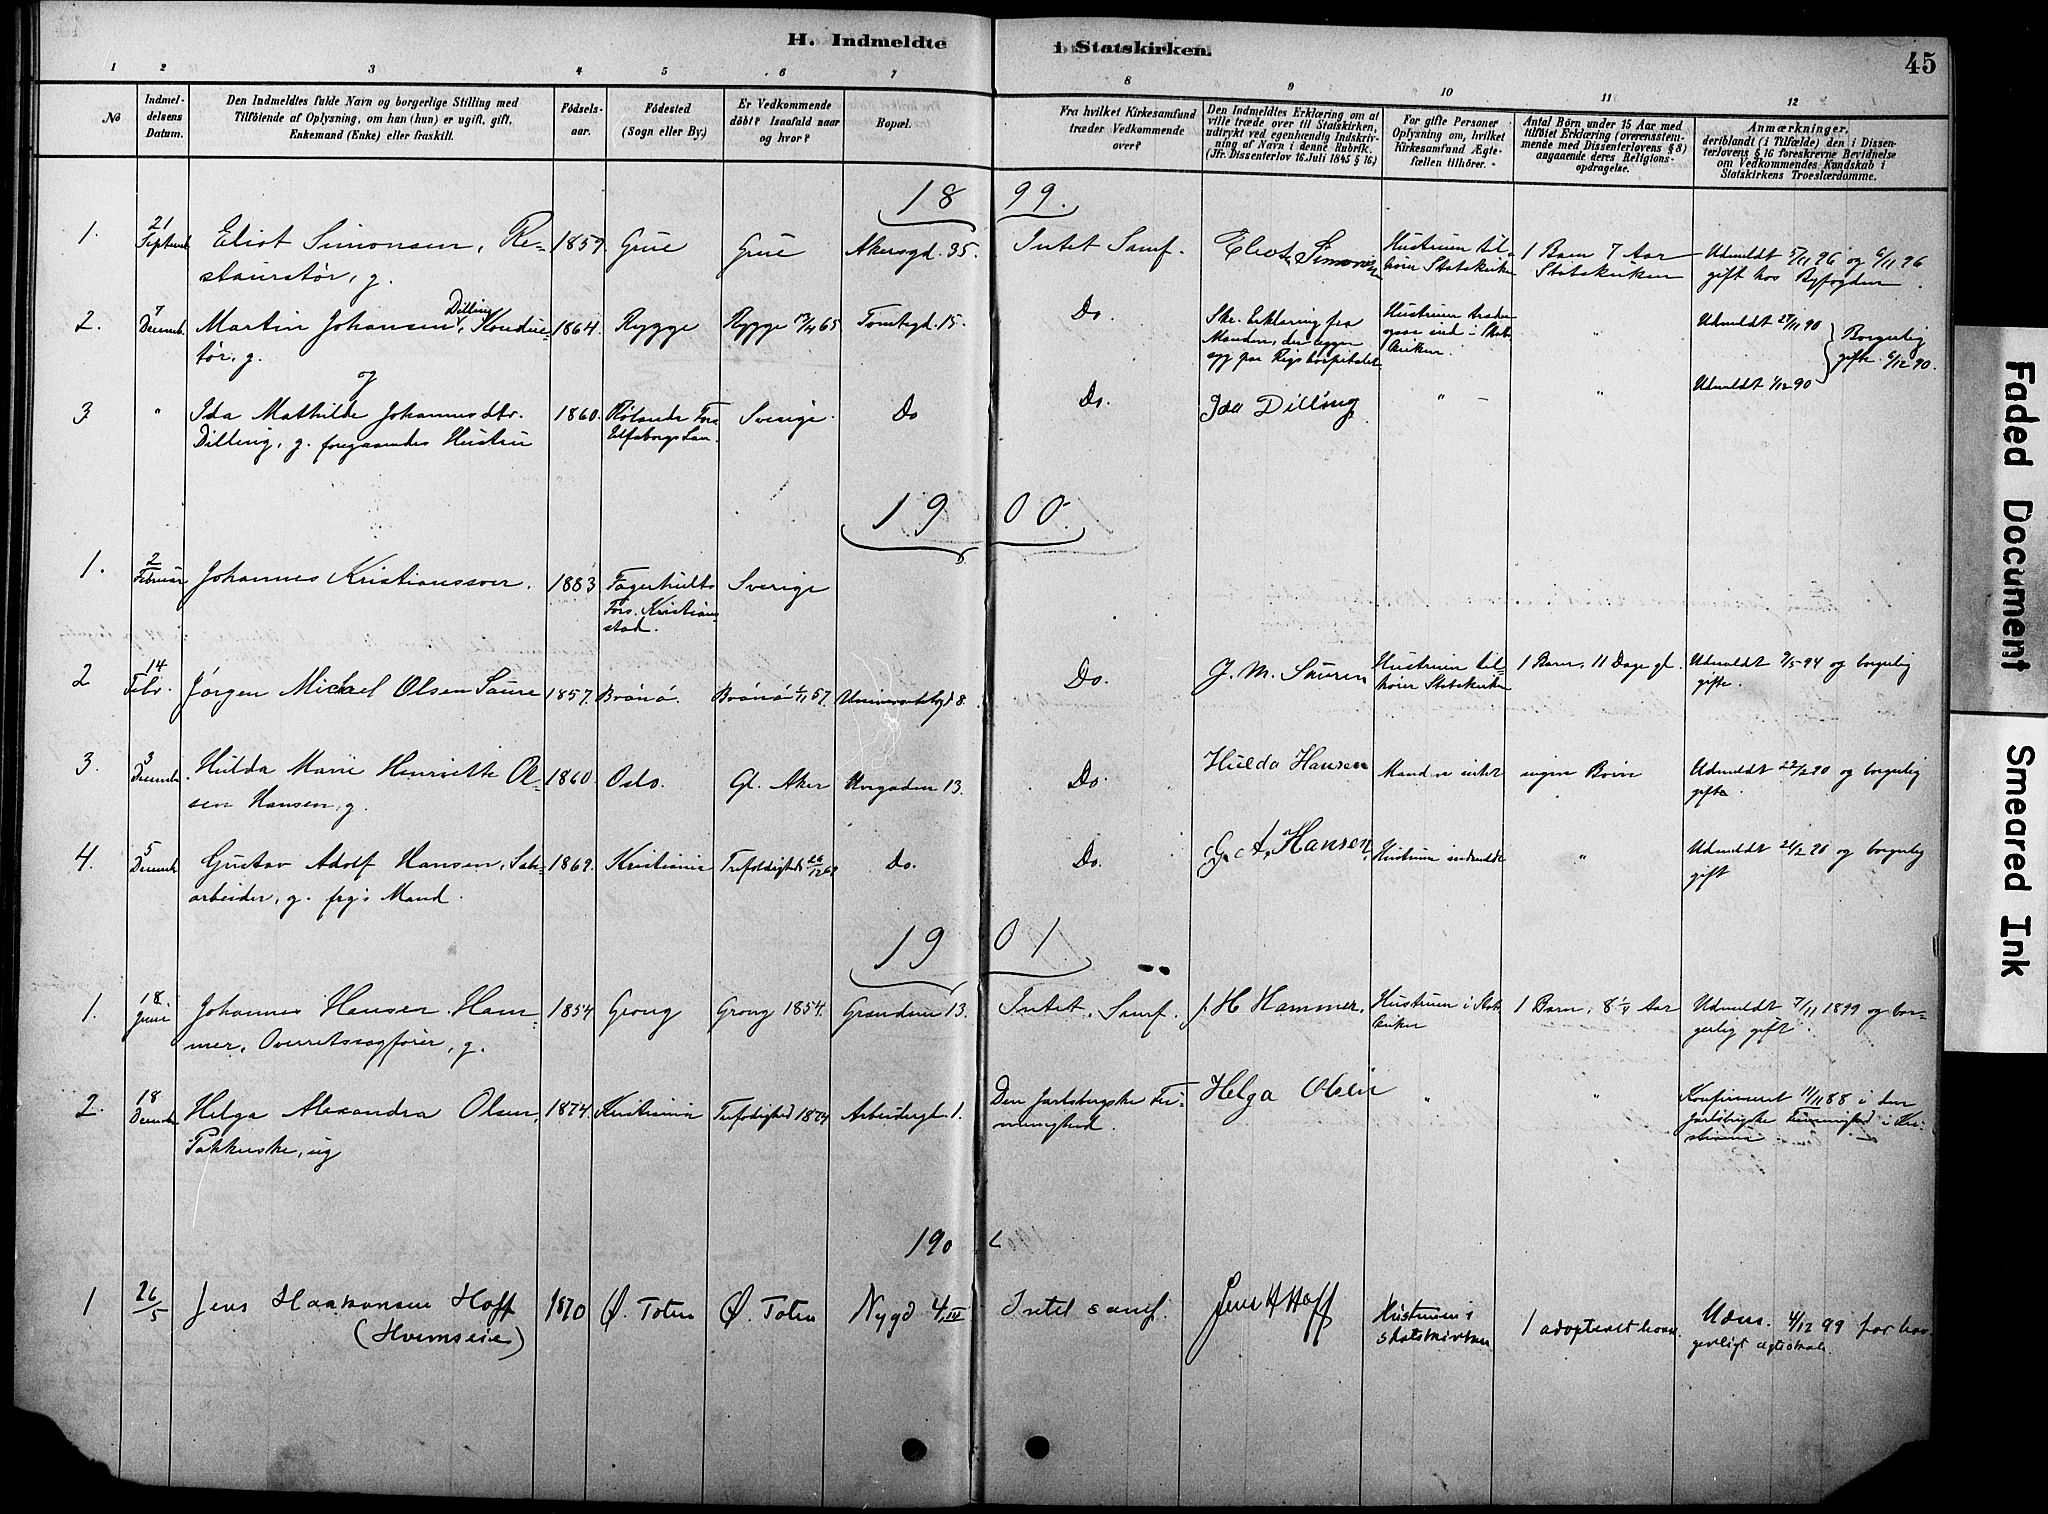 H. Indmeldte i Statskirken.
45
1 2 3 4 5 6 7 8 9 10 11 12
No
Indmel-
delsens
Datum.
Den Indmeldtes fulde Navn og borgerlige Stilling med
Tilföiende af Oplysning, om han (hun) er ugift, gift,
Enkemand (Enke) eller fraskilt.
Födsels-
aar.
Födested
(Sogn eller By.)
Er Vedkommende
döbt? Isaafald naar
og hvor?
Bopæl.
Fra hvilket Kirkesamfund
træder Vedkommende
over?
Den Indmeldtes Erklæring om at
ville træde over til Statskirken,
udtrykt ved egenhændig Indskriv-
ning af Navn i denne Rubrik.
(Jfr. Dissenterlov 16. Juli 1845 § 16.)
For gifte Personer
Oplysning om, hvilket
Kirkesamfund Ægte-
fællen tilhörer.
Antal Börn under 15 Aar med
tilföiet Erklæring (overensstem-
mende med Dissenterlovens § 8)
angaaende deres Religions-
opdragelse.
Anmærkninger,
deriblandt (i Tilfælde) den i Dissen-
terlovens § 16 foreskrevne Bevidnelse
om Vedkommendes Kundskab i
Statskirkens Troeslærdomme.
18 99.
1.
21
Septemb.
Eliot Simonsen, Re-
stauratør, g.
1857
Grue
Grue
Akersgd. 35.
Intet Samf.
Eliot Simonsen
Hustruen til-
hører Statskirken
1 Barn 7 Aar
Statskirken
Udmeldt 5/11 96 og 6/11 96
gift hos Byfogden.
2.
7
Decemb.
Dilling
Martin Johansen, Konduk-
tør, g.
og
1864.
Rygge
Rygge 17/4 65
Tomtegd. 15.
Do.
Skr. Erklæring fra
Manden, der ligger
syg paa Rigshospitalet
Hustruen træder
ogsaa ind i Stats-
kirken.
"
Udmeldt 29/11 90
Borgerlig
gifte 6/12 90.
Udmeldt 1/12 90
3
"
Ida Mathilde Johannesdtr.
Dilling, g. foregaaendes Hustru
1860.
Rölanda Fors.
Elfsborgs Län.
Sverige.
Do
Do.
Ida Dilling
" -
"
19 00.
1.
2
Februar
Johannes Kristiansson.
1883
Fagerhults
Fors. Kristian-
stad.
Sverige
2
14
Febr.
Jørgen Mickael Olsen Saure
1857.
Brönö.
Brönö 1/11 57.
Universitetsgd 8.
Do.
J. M. Sauren
Hustruen til-
hører Statskirken
1 Barn, 11 Dage gl.
Udmeldt 9/5 94 og borgerlig
gifte.
3.
3
Decemb.
Hulda Marie Henriette Ol-
sen Hansen, g.
1860.
Oslo.
Gl. Aker
13.
Do
Hulda Hansen
Mand n intet
ingen Børn
Udmeldt 22/2 90 og borgerlig
gifte.
4.
5
Decemb.
Gustav Adolf Hansen, Sak-
arbeider, g. frg's Mand.
1869.
Kristiania
Trefoldigheds 26/12 69
Do.
Do.
G. A. Hansen.
Hustruen indmeldt
"
Udmeldt 21/2 90 og borgerlig
gift
19 01
1.
18
Juni
Johannes Hansen Ham-
mer, Overretssagfører, g.
1854
Grong
Grong 1854.
Grændsen 13.
Intet Samf.
J. H Hammer.
Hustruen i Stats-
kirken
1 Barn, 8 1/4 Aar
Udmeldt 7/11 1899 og bor-
gerlig gift.
2.
18
Decemb
Helga Alexandra Olsen,
Pakkerske, ug
1874.
Kristiania
Trefoldighed 1874
Arbeidergd. 1.
Den Jarlsbergske Fri-
menighed.
Helga Olsen
"
"
Konfirmeret 11/11 88 i den
Jarlsbergske Frimenighed i Kri-
stiania
190 2
1
26/5
Jens Haakonsen Hoff
(Hvemseie)
1870
Ø. Toten
Ø. Toten
Nygd 4 IV
Intet samf.
Jens H Hoff
Hustruen i
statskirken
1 adopteret barn.
Udm. 4/12 99 for bor-
gerligt ægteskab.
Faded Document
Smeared Ink